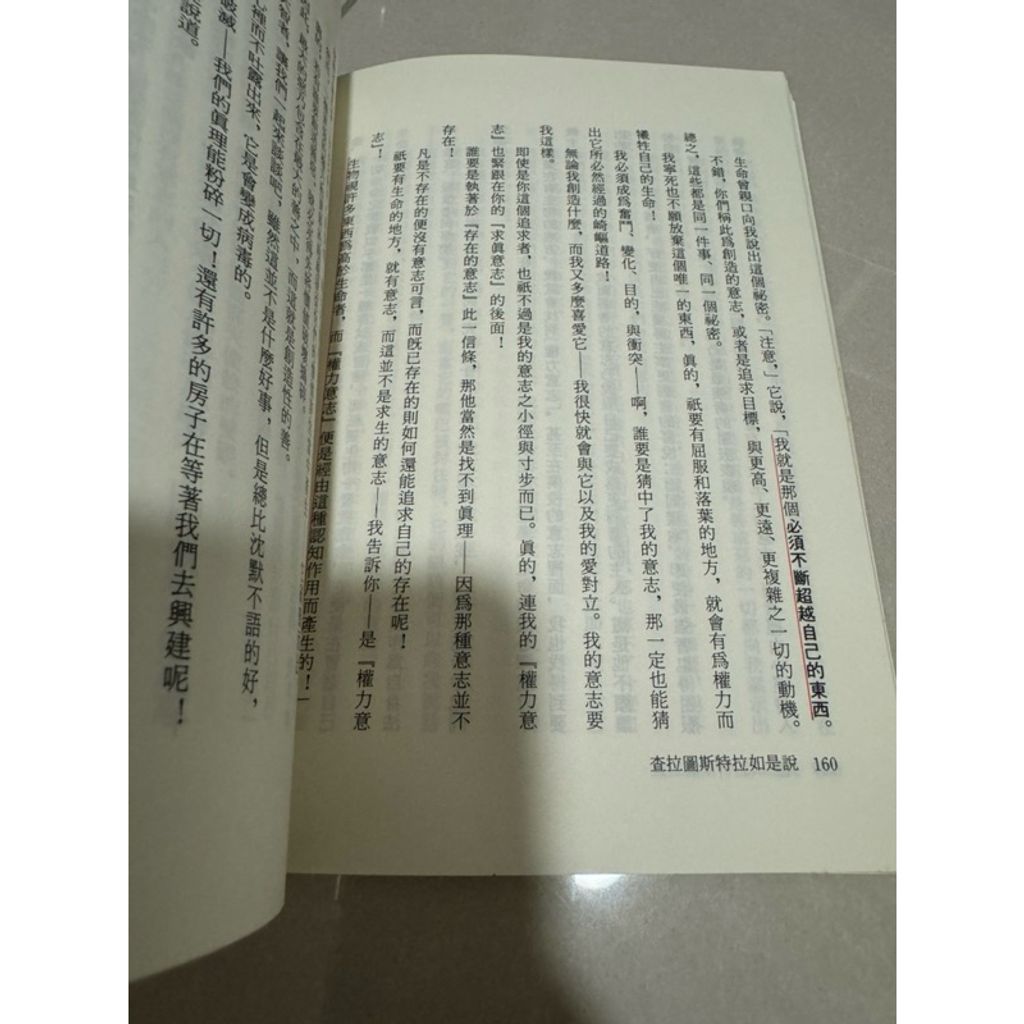 生命曾親口向我說出這個祕密。「注意，」它說，「我就是那個必須不斷超越自己的東西。
不錯，你們稱此爲創造的意志，或者是追求目標，與更高、更遠、更複雜之一切的動機。
總之，這些都是同一件事、同一個祕密。
我寧死也不願放棄這個唯一的東西，眞的，祇要有屈服和落葉的地方，就會有爲權力而
犧牲自己的生命！
我必須成爲奮鬥、變化、目的，與衝突——啊，誰要是猜中了我的意志，那一定也能猜
出它所必然經過的崎嶇道路！
無論我創造什麼，而我又多麼喜愛它——我很快就會與它以及我的愛對立。我的意志要
我這樣。
即使是你這個追求者，也祇不過是我的意志之小徑與寸步而已。眞的，連我的『權力意
志』也緊跟在你的『求眞意志』的後面！
誰要是執著於『存在的意志』此一信條，那他當然是找不到眞理——因爲那種意志並不
存在！
凡是不存在的便沒有意志可言，而旣已存在的則如何還能追求自己的存在呢！
祇要有生命的地方，就有意志，而這並不是求生的意志——我告訴你——是『權力意
志』！
生物視許多東西爲高於生命者，而『權力意志』便是經由這種認知作用而產生的！」
查拉圖斯特拉如是說 160
智者，讓我們一起來談談吧，雖然這並不是什麼好事，但是總比沈默不語的好，
裡而不吐露出來，它是會變成病毒的。
破滅——我們的眞理能粉碎一切！還有許多的房子在等著我們去興建呢！
說道。